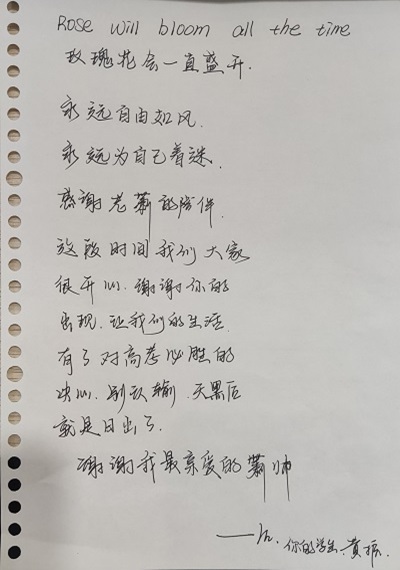 Rose will bloom all the time
玫瑰花会一直盛开.
永远自由如风.
永远为自己着迷.
感谢老萧的陪伴.
这段时间我们大家
很开心.谢谢你的
出现.让我们的生活.
有了对高考必胜的
决心.别认输.天黑后
就是日出了.
谢谢我最亲爱的萧帅
你的学生.黄